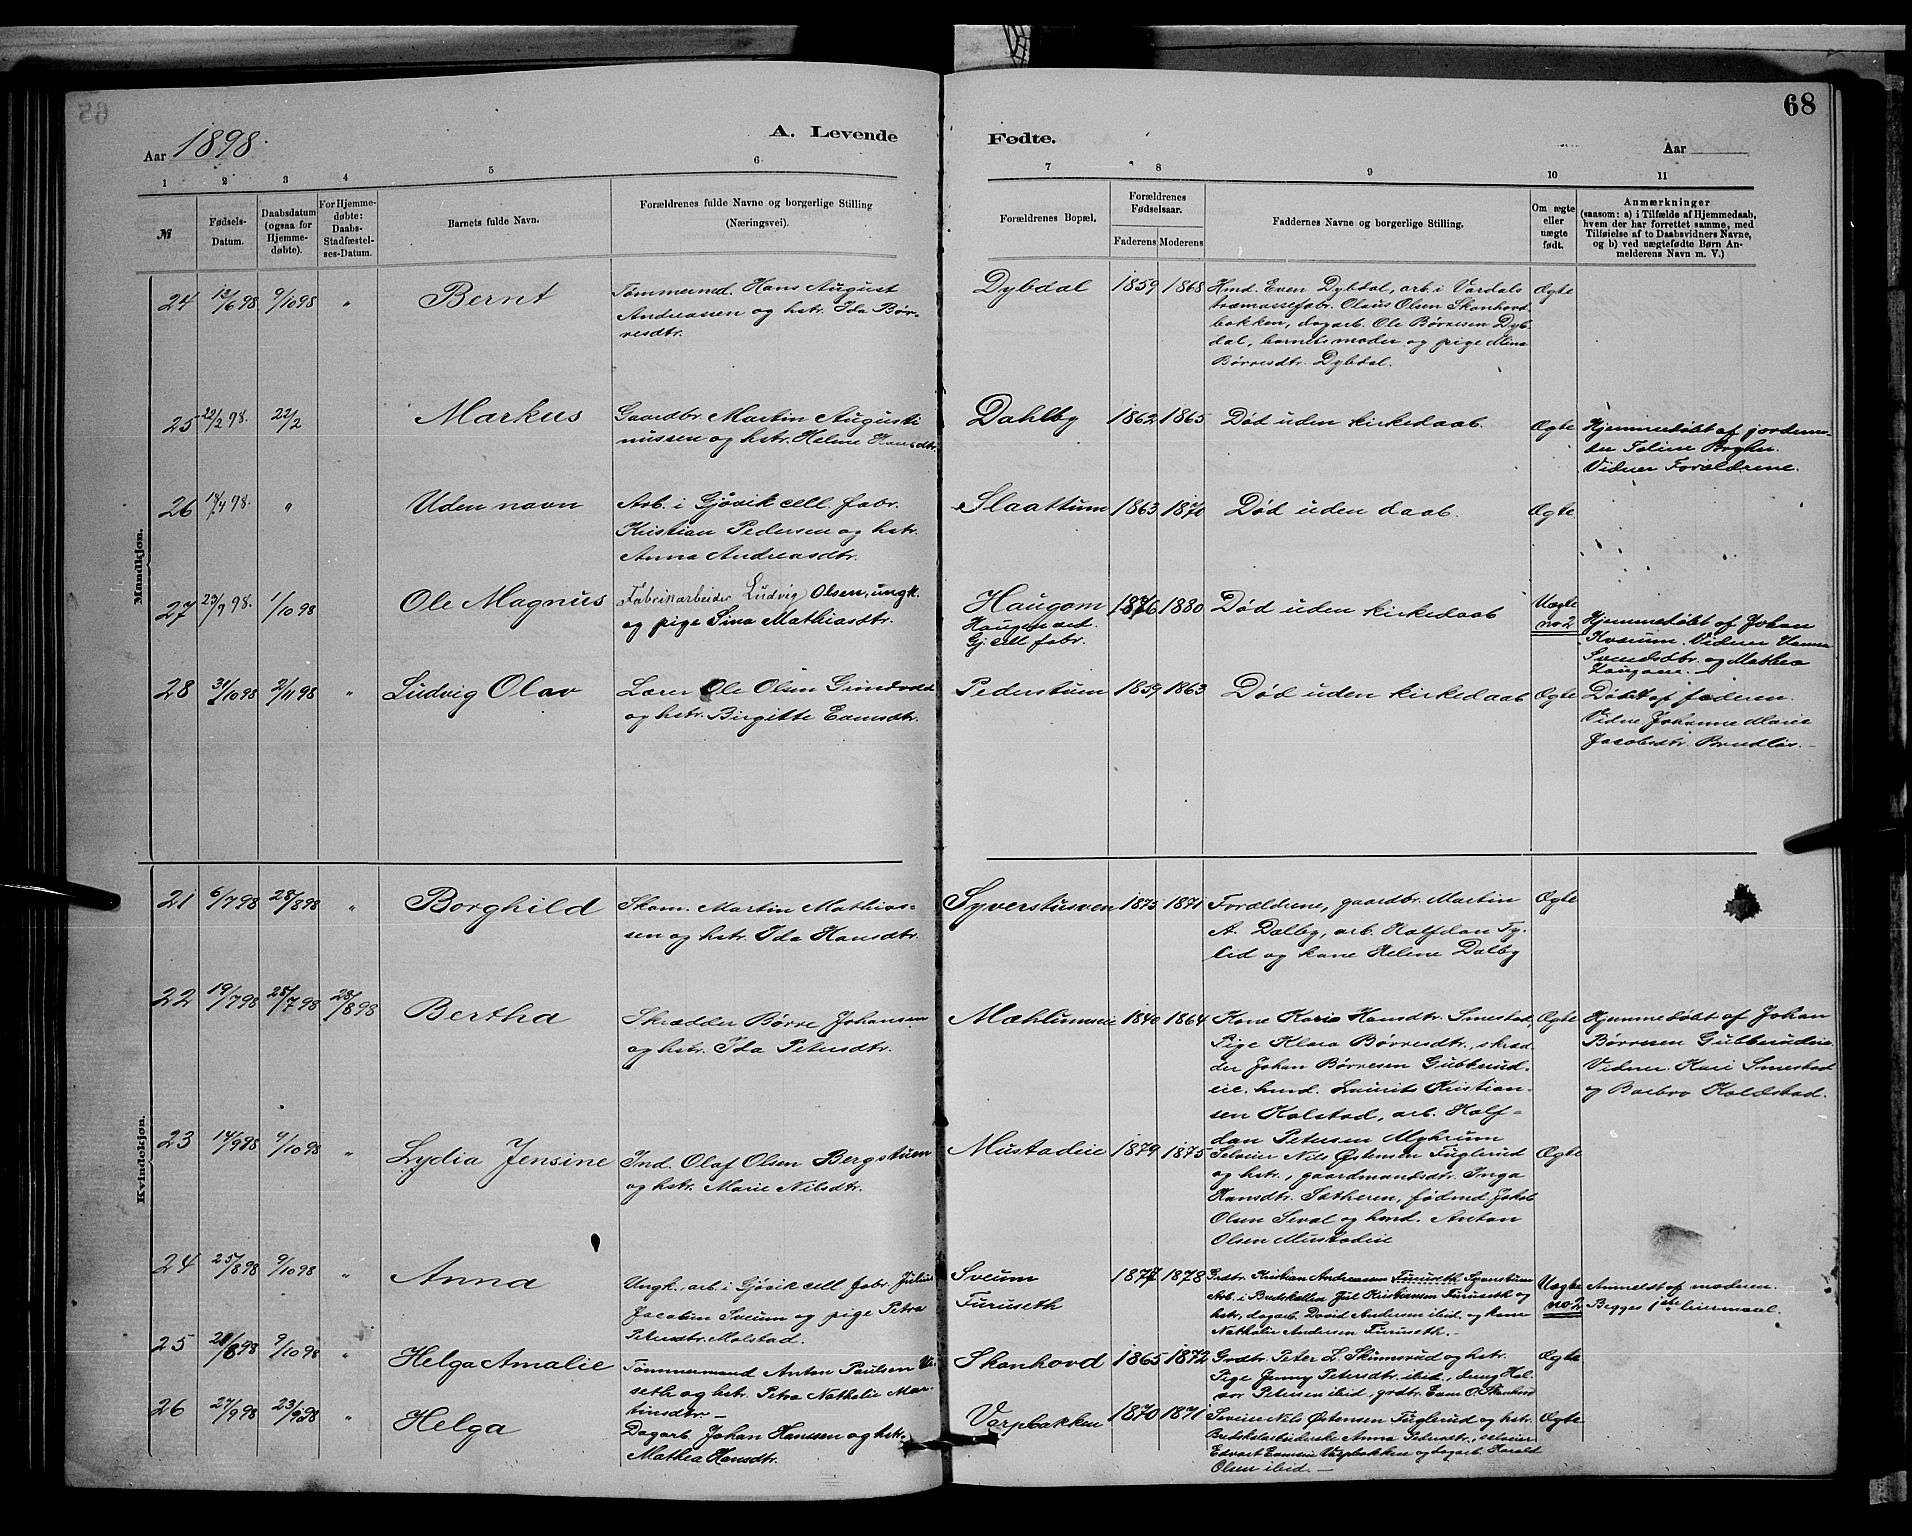 68
Aar 1898.
A. Levende
Fødte.
Aar
1 2 3 4 5 6
7 8 9 10 11
№
Fødsels-
Datum.
Daabsdatum
(ogsaa for
Hjemme-
døbte).
For Hjemme-
døbte:
Daabs-
Stadfæstel-
ses-Datum.
Barnets fulde Navn.
Forældrenes fulde Navne og borgerlige Stilling
(Næringsvei).
Forældrenes Bopæl.
Forældrenes
Fødselsaar.
Faderens
Moderens
Faddernes Navne og borgerlige Stilling.
Om ægte
eller
uægte
født.
Anmærkninger
(saasom: a) i Tilfælde af Hjemmedaab,
hvem der har forrettet samme, med
Tilføielse af to Daabsvidners Navne,
og b) ved uægtefødte Børn An-
melderens Navn m. V.)
Mandkjøn.
24 12/6 98. 9/10 98 " Bernt
Tømmermd. Hans August
Andreassen og hstr. Ida Bør-
resdtr.
Dybdal 1859 1868
Hmd. Even Dybdal, arb. i Vardals
træmassefabr. Olaus Olsen Skonhovd-
bakken, dagarb. Ole Børresen Dyb-
dal, barnets moder og pige Mina
Børresdtr. Dybdal.
Ægte
25 22/2 98. 22/2 Markus
Gaardbr. Martin Augusti
nussen og hstr. Helene Hansdtr.
Dahlby 1862 1865
Død uden kirkedaab.
Ægte
Hjemmedøbt af jordemo-
der
Vidner Forældrene.
26 18/4 98. " Uden navn
Arb. i Gjøvik cell. fabr.
Kristian Pedersen og hstr.
Anna Andreasdtr.
Slaattum 1863 1870
Død uden daab.
Ægte
27 23/9 98. 1/10 98 Ole Magnus
Fabrikarbeider Ludvig Olsen, ungk.
og pige Sina Mathiasdtr.
Haugom
Gj. cell fabr.
1876 1880
Død uden kirkedaab
Uægte
no 2
Hjemmedøbt af Johan
Kværum. Vidner Hanna
og Mathea
28 31/10 98 2/11 98 " Ludvig Olav
Lærer Ole Olsen Grindvold
og hstr. Birgitte Evensdtr.
Pederstum 1859 1863
Død uden kirkedaab
Ægte
Døbt af faderen.
Vidne. Johanne Marie
Jacobsdtr.
Kvindekjøn.
21 6/7 98 28/8 98 " Borghild
Skom. Martin Mathias-
sen og hstr. Ida Hansdtr.
Syverstuven 1873 1871
Forældrene, gaardbr. Martin
A. Dalby, arb. Halfdan Ty-
lid og kone Helene Dalby
Ægte
22 19/7 98 25/7 98 28/8 98 Bertha
Skrædder Børre Johansen
og hstr. Ida Petersdtr.
Mæhlumseie 1840 1864
Kone Karie Hansdtr. Smestad,
Pige Klara Børresdtr., skræd-
der Johan Børresen Gubberud-
eie, hmd. Laurits Kristian-
sen Kolstad, arb. Half-
dan Petersen Myhrum
Ægte
Hjemmedøbt af Johan
Børresen Gubberudeie.
Vidner. Kari Smestad
og Barbro Koldstad.
23 14/9 98 9/10 98 " Lydia Jensine
Ind. Olaf Olsen Bergstuen
og hstr. Marie Nilsdtr.
Mustadeie 1879 1875
Selveier Nils Østensen Fuglerud
og hstr., gaardmandsdtr. Inga
Hansdtr. Sætheren, fødmd. Jakob
Olsen Seval og hmd. Anton
Olsen Mustadeie
Ægte
24 25/8 98 9/10 98 " Anna
Ungk., arb. i Gjøvik cell. fabr. Julius
Jacobsen Sveum og pige Petra
Petersdtr. Molstad.
Sveum
Furuseth
1877 1878
Grdbr. Kristian Andreassen Furuseth
Arb. i Juel Kristiansen Furuseth og
hstr, dagarb. David Andersen ibid. og kone
Nathalie Andersen Furuseth.
Uægte
no 2
Anmeldt af moderen.
Begges 1ste leiermaal.
25 21/8 98 9/10 98 " Helga Amalie
Tømmermand Anton Paulsen Vi-
seth og hstr. Petra Nathalie Mar-
tinsdtr.
Skonhovd 1865 1872
Grdbr. Peter L. Skinnerud og hstr.
Pige Jenny Petersdtr. ibid., dreng Hal-
vor Petersen ibid, grdbr. Even O. Skonhovd
Ægte
26 27/9 98 23/9 98 " Helga
Dagarb. Johan Hanssen og hstr.
Mathea Hansdtr.
Varpbakken 1870 1871
Selveier Nils Østensen Fuglerud og hstr.
Anna Pedersdtr., selveier
Edvart Evensen Varpbakken og dagarb. Harald
Olsen ibid.
Ægte